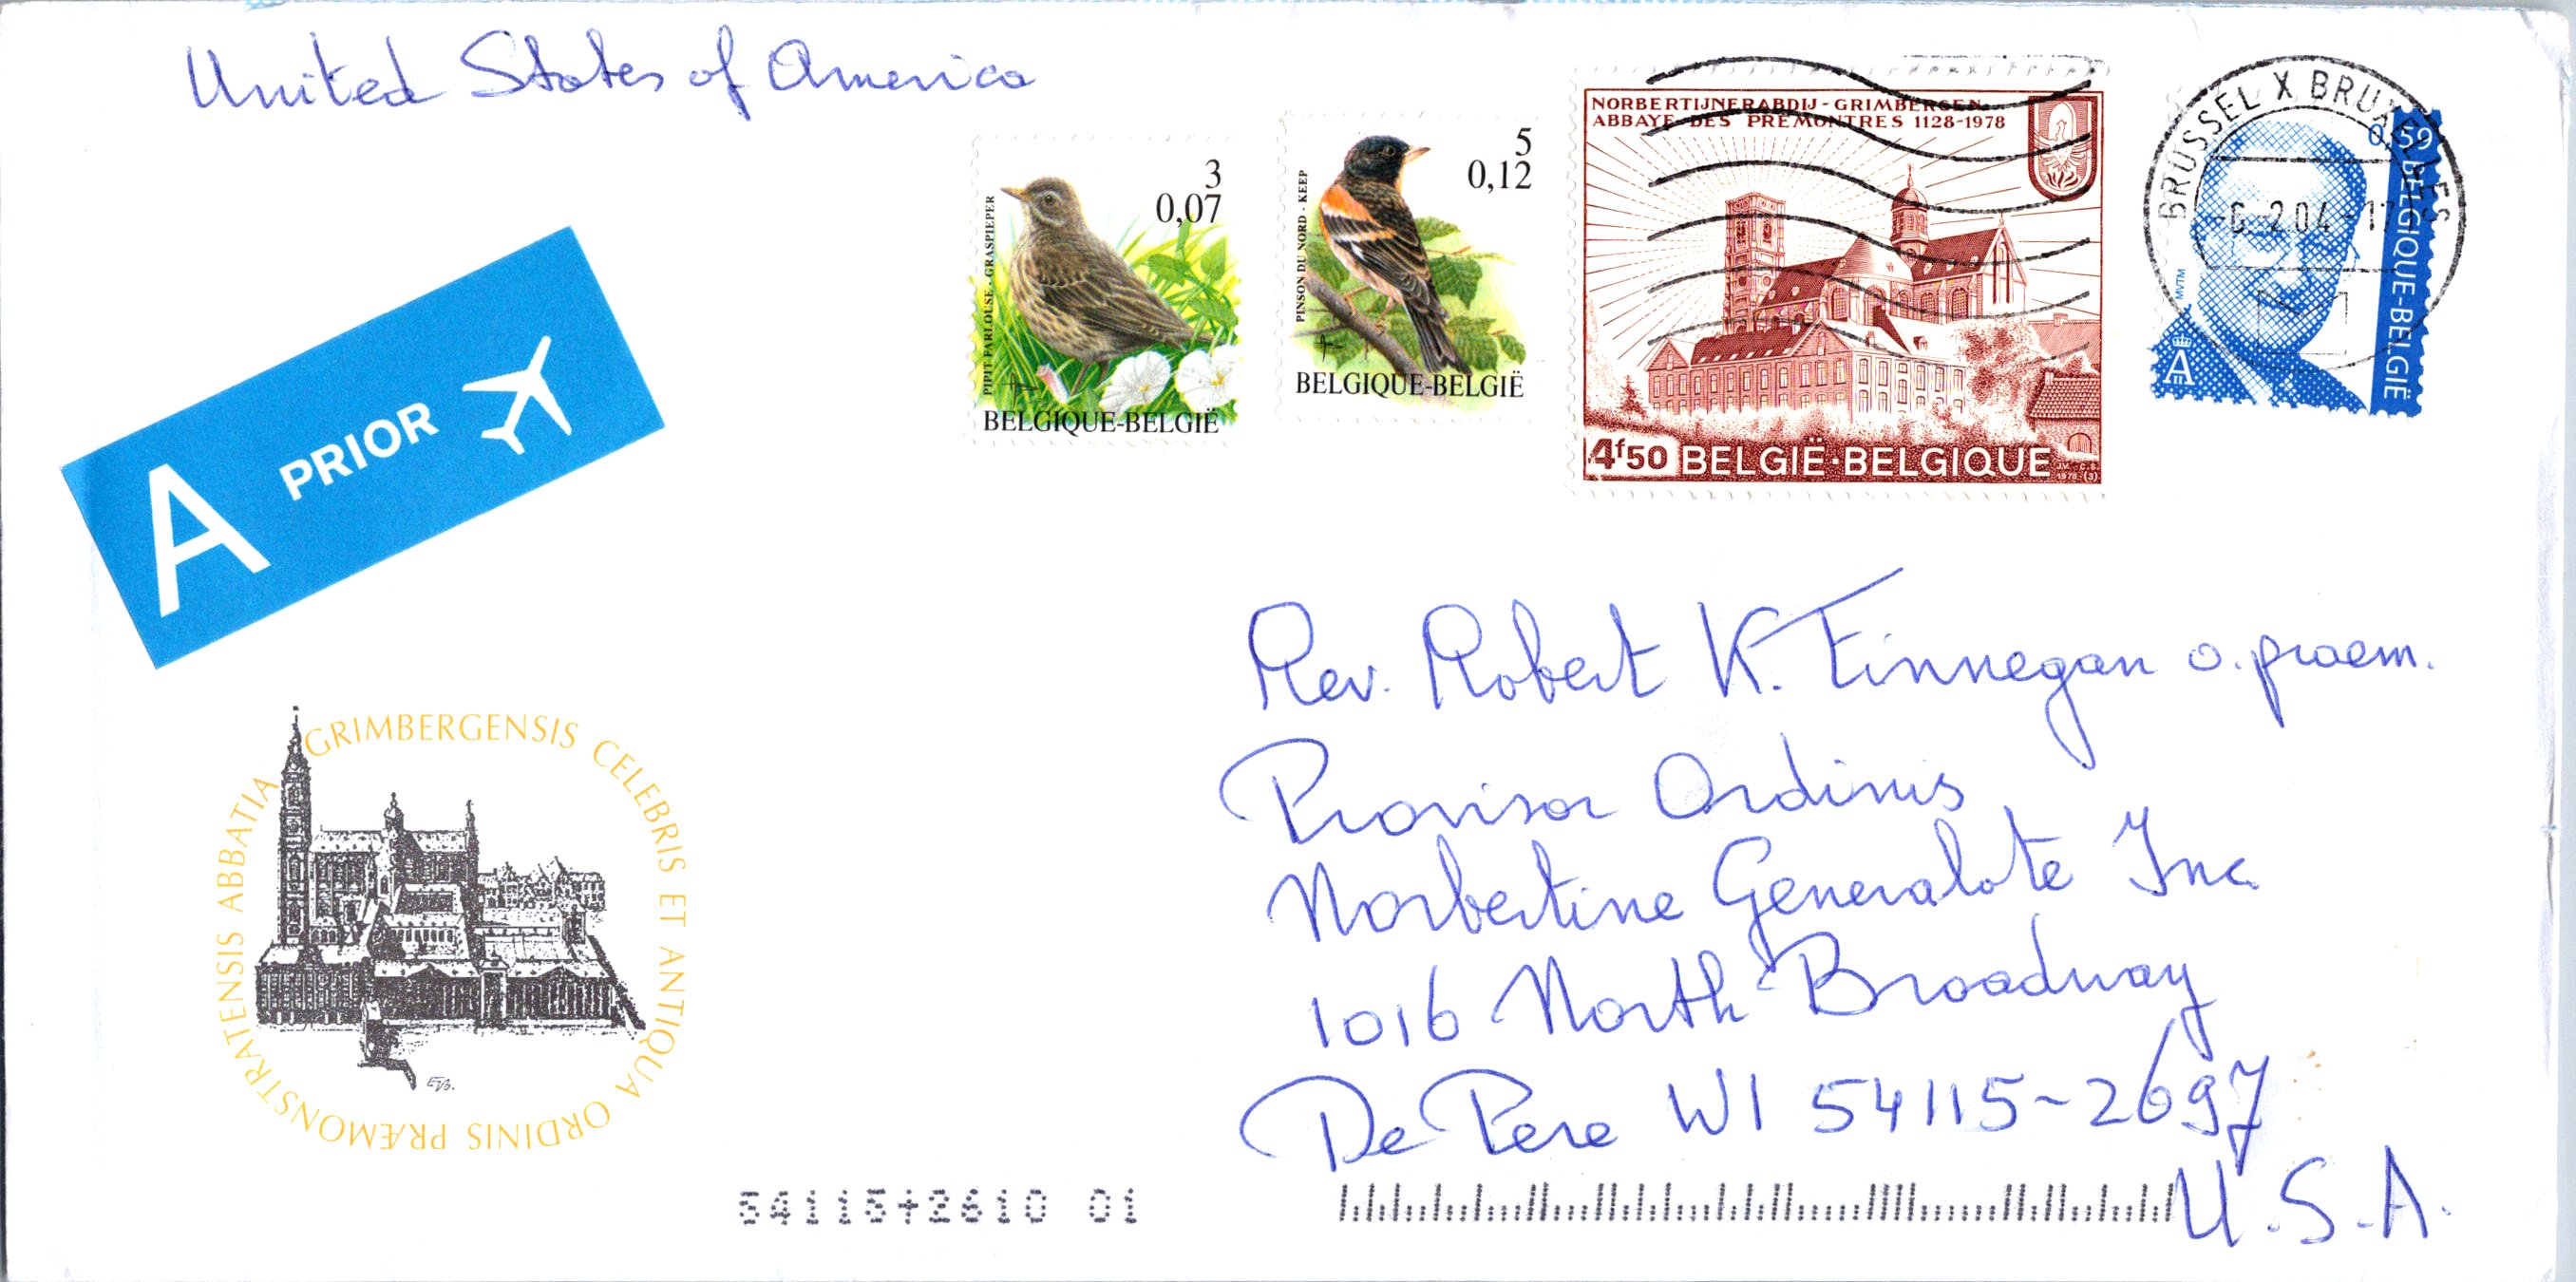 United States of America
3
0,07
PIPIT FARLOUSE - GRASPIEPER
BELGIQUE-BELGIË
5
0,12
PINSON DU NORD - KEEP
BELGIQUE-BELGIË
NORBERTIJNERABDIJ - GRIMBERGEN
ABBAYE DES PREMONTRES 1128-1978
4f50 BELGIË·BELGIQUE
BRUSSEL X BRUXELLES
-6-2.04-17
0,59
BELGIQUE-BELGIË
MVTM
A
A PRIOR
GRIMBERGENSIS CELEBRIS ET ANTIQUA ORDINIS PRÆMONSTRATENSIS ABBATIA
Rev. Robert K. Finnegan o.praem.
Provisor Ordinis
Norbertine Generalate Inc.
1016 North Broadway
De Pere WI 54115-2697
U.S.A.
54115+2610 01